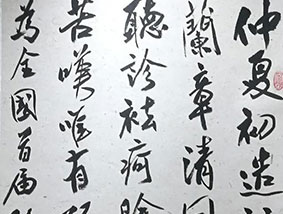 仲夏初造
蘭章清
聽診祛疴
苦嘆唯有
為全國首届